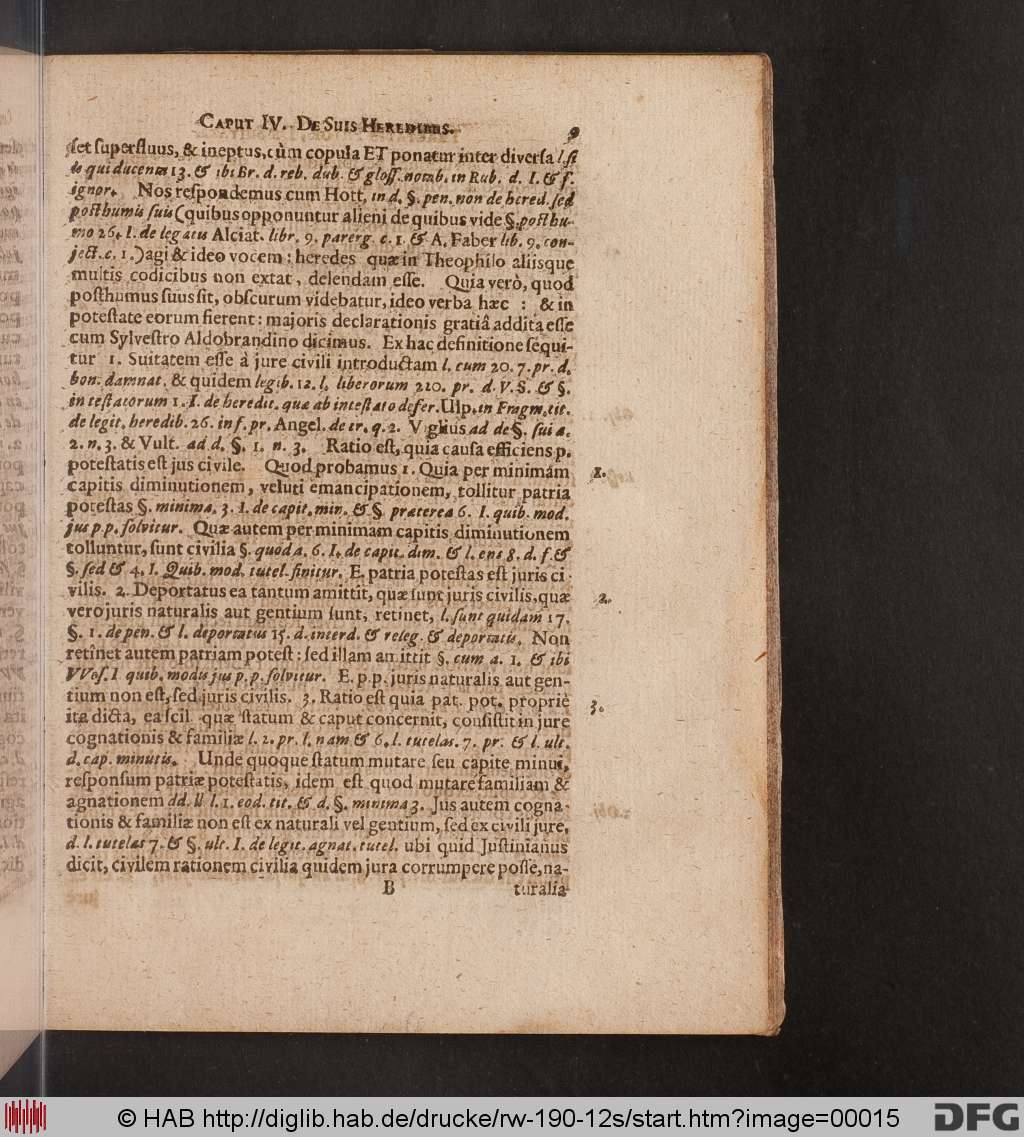 CAPUT IV. DE SUIS HEREDIBUS. 9
set superfluus, & ineptus, cùm copula ET ponatur inter diversa l. si
is qui ducenta 13. & ibi Br. d. reb. dub. & gloss. notab. in Rub. d. I. & f.
ignor. Nos respondemus cum Hott, in d. §. pen. non de hered. sed
posthumis suis (quibus opponuntur alieni de quibus vide §. posthu-
mo 26. I. de legatis Alciat. libr. 9. parerg. c. 1. & A. Faber lib. 9. con-
ject. c. 1.) agi & ideo vocem: heredes quæ in Theophilo aliisque
multis codicibus non extat, delendam esse. Quia verò, quod
posthumus suus sit, obscurum videbatur, ideo verba hæc : & in
potestate eorum fierent: majoris declarationis gratiâ addita esse
cum Sylvestro Aldobrandino dicimus. Ex hac definitione sequi-
tur 1. Suitatem esse â jure civili introductam l. cum 20. 7. pr. d.
bon. damnat. & quidem legib. 12. l. liberorum 220. pr. d. V. S. & §.
intestatorum 1. I. de heredit. quæ ab intestato defer. Ulp. in Fragm. tit.
de legit. heredib. 26. inf. pr. Angel. de tr. q. 2. Viglius ad de §. sui a.
2. n. 3. & Vult. ad d. §. 1. n. 3. Ratio est, quia causa efficiens p.
potestatis est jus civile. Quod probamus 1. Quia per minimam
1.
capitis diminutionem, veluti emancipationem, tollitur patria
potestas §. minima. 3. I. de capit. min. & §. præterea 6. I. quib. mod.
jus p. p. solvitur. Quæ autem per minimam capitis diminutionem
tolluntur, sunt civilia §. quod a. 6. I. de capit. dim. & l. eas 8. d. f. &
§. sed & 4. I. Quib. mod. tutel. finitur. E. patria potestas est juris ci-
vilis. 2. Deportatus ea tantum amittit, quæ sunt juris civilis, quæ
2.
vero juris naturalis aut gentium sunt, retinet, l. sunt quidam 17.
§. 1. de pen. & l. deportatus 15. d. interd. & releg. & deportatis. Non
retinet autem patriam potest: sed illam amittit §. cum a. 1. & ibi
VVes. I quib. modis jus p. p. solvitur. E. p. p. juris naturalis aut gen-
tium non est, sed juris civilis. 3. Ratio est quia pat. pot. propriè
3.
ita dicta, ea scil. quæ statum & caput concernit, consistit in jure
cognationis & familiæ l. 2. pr. l. nam & 6. l. tutelas. 7. pr. & l. ult.
d. cap. minutis. Unde quoque statum mutare seu capite minui,
responsum patriæ potestatis, idem est quod mutare familiam &
agnationem dd. ll l. 1. eod. tit. & d. §. minima 3. Jus autem cogna-
tionis & familiæ non est ex naturali vel gentium, sed ex civili jure,
d. l. tutelas 7. & §. ult. I. de legit. agnat. tutel. ubi quid Justinianus
dicit, civilem rationem civilia quidem jura corrumpere posse, na-
B turalia
© HAB http://diglib.hab.de/drucke/rw-190-12s/start.htm?image=00015
DFG